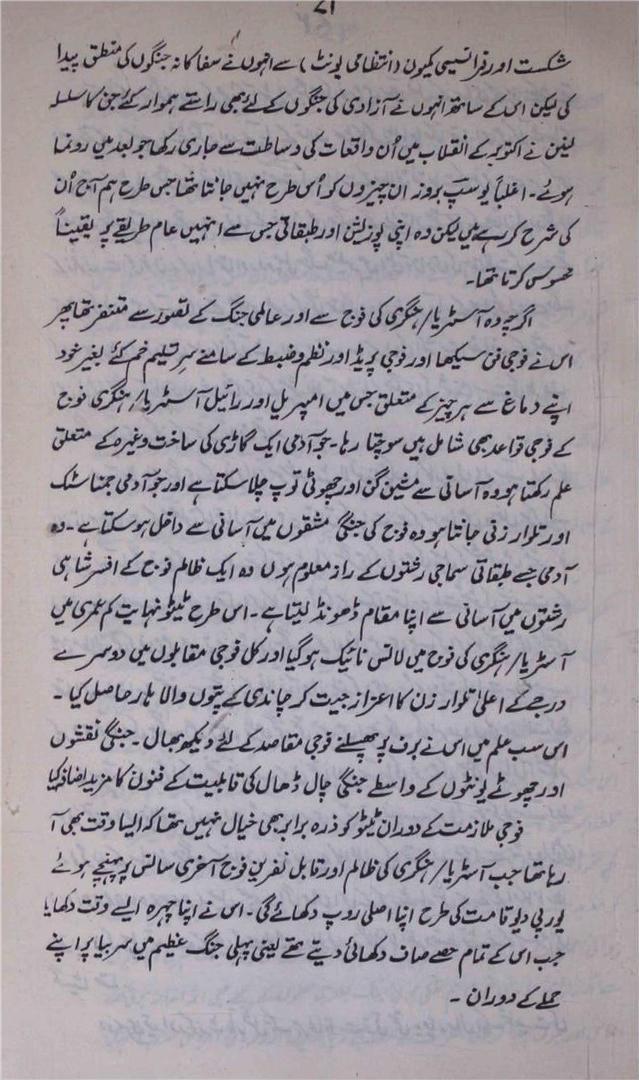 21
شکست اور فرانسیسی کمیون (انتظامی یونٹ) سے انہوں نے سفاکانہ جنگوں کی منطق پیدا
کی لیکن اس کے ساتھ انہوں نے آزادی کی جنگوں کے لئے بھی راستے ہموار کئے جن کا سلسلہ
لینن نے اکتوبر کے انقلاب میں اُن واقعات کی وساطت سے جاری رکھا جو بعد میں رونما
ہوئے۔ اغلباً یوسپ بروز ان چیزوں کو اُس طرح نہیں جانتا تھا جس طرح ہم آج اُن
کی شرح کر رہے ہیں لیکن وہ اپنی پوزیشن اور طبقاتی جس سے انہیں عام طریقے پر یقیناً
محسوس کرتا تھا۔
اگرچہ وہ آسٹریا/ہنگری کی فوج سے اور عالمی جنگ کے تصور سے متنفر تھا پھر
اس نے فوجی فن سیکھا اور فوجی پریڈ اور نظم و ضبط کے سامنے سرِ تسلیم خم کئے بغیر خود
اپنے دماغ سے ہر چیز کے متعلق جس میں امپیریل اور رائیل آسٹریا/ہنگری فوج
کے فوجی قواعد بھی شامل ہیں سوچتا رہا۔ جو آدمی ایک گاڑی کی ساخت وغیرہ کے متعلق
علم رکھتا ہو وہ آسانی سے مشین گن اور چھوٹی توپ چلا سکتا ہے اور جو آدمی جمناسٹک
اور تلوار زنی جانتا ہو وہ فوج کی جنگی مشقوں میں آسانی سے داخل ہو سکتا ہے۔ وہ
آدمی جسے طبقاتی سماجی رشتوں کے راز معلوم ہوں وہ ایک ظالم فوج کے افسر شاہی
رشتوں میں آسانی سے اپنا مقام ڈھونڈ لیتا ہے۔ اس طرح ٹیٹو نہایت کم عمری میں
آسٹریا/ہنگری کی فوج میں لانس نائیک ہو گیا اور کل فوجی مقابلوں میں دوسرے
درجے کے اعلیٰ تلوار زن کا اعزاز جیت کر چاندی کے پتوں والا ہار حاصل کیا۔
اس سب علم میں اس نے برف پر پھسلنے فوجی مقاصد کے لئے دیکھ بھال۔ جنگی نقشوں
اور چھوٹے یونٹوں کے واسطے جنگی چال ڈھال کی قابلیت کے فنون کا مزید اضافہ کیا
فوجی ملازمت کے دوران ٹیٹو کو ذرہ برابر بھی خیال نہیں تھا کہ ایسا وقت بھی آ
رہا تھا جب آسٹریا/ہنگری کی ظالم اور قابل نفرین فوج آخری سانس پر پہنچے ہوئے
یورپی دیو قامت کی طرح اپنا اصلی روپ دکھائے گی۔ اس نے اپنا چہرہ ایسے وقت دکھایا
جب اس کے تمام حصے صاف دکھائی دیتے تھے یعنی پہلی جنگ عظیم میں سربیا پر اپنے
حملے کے دوران۔